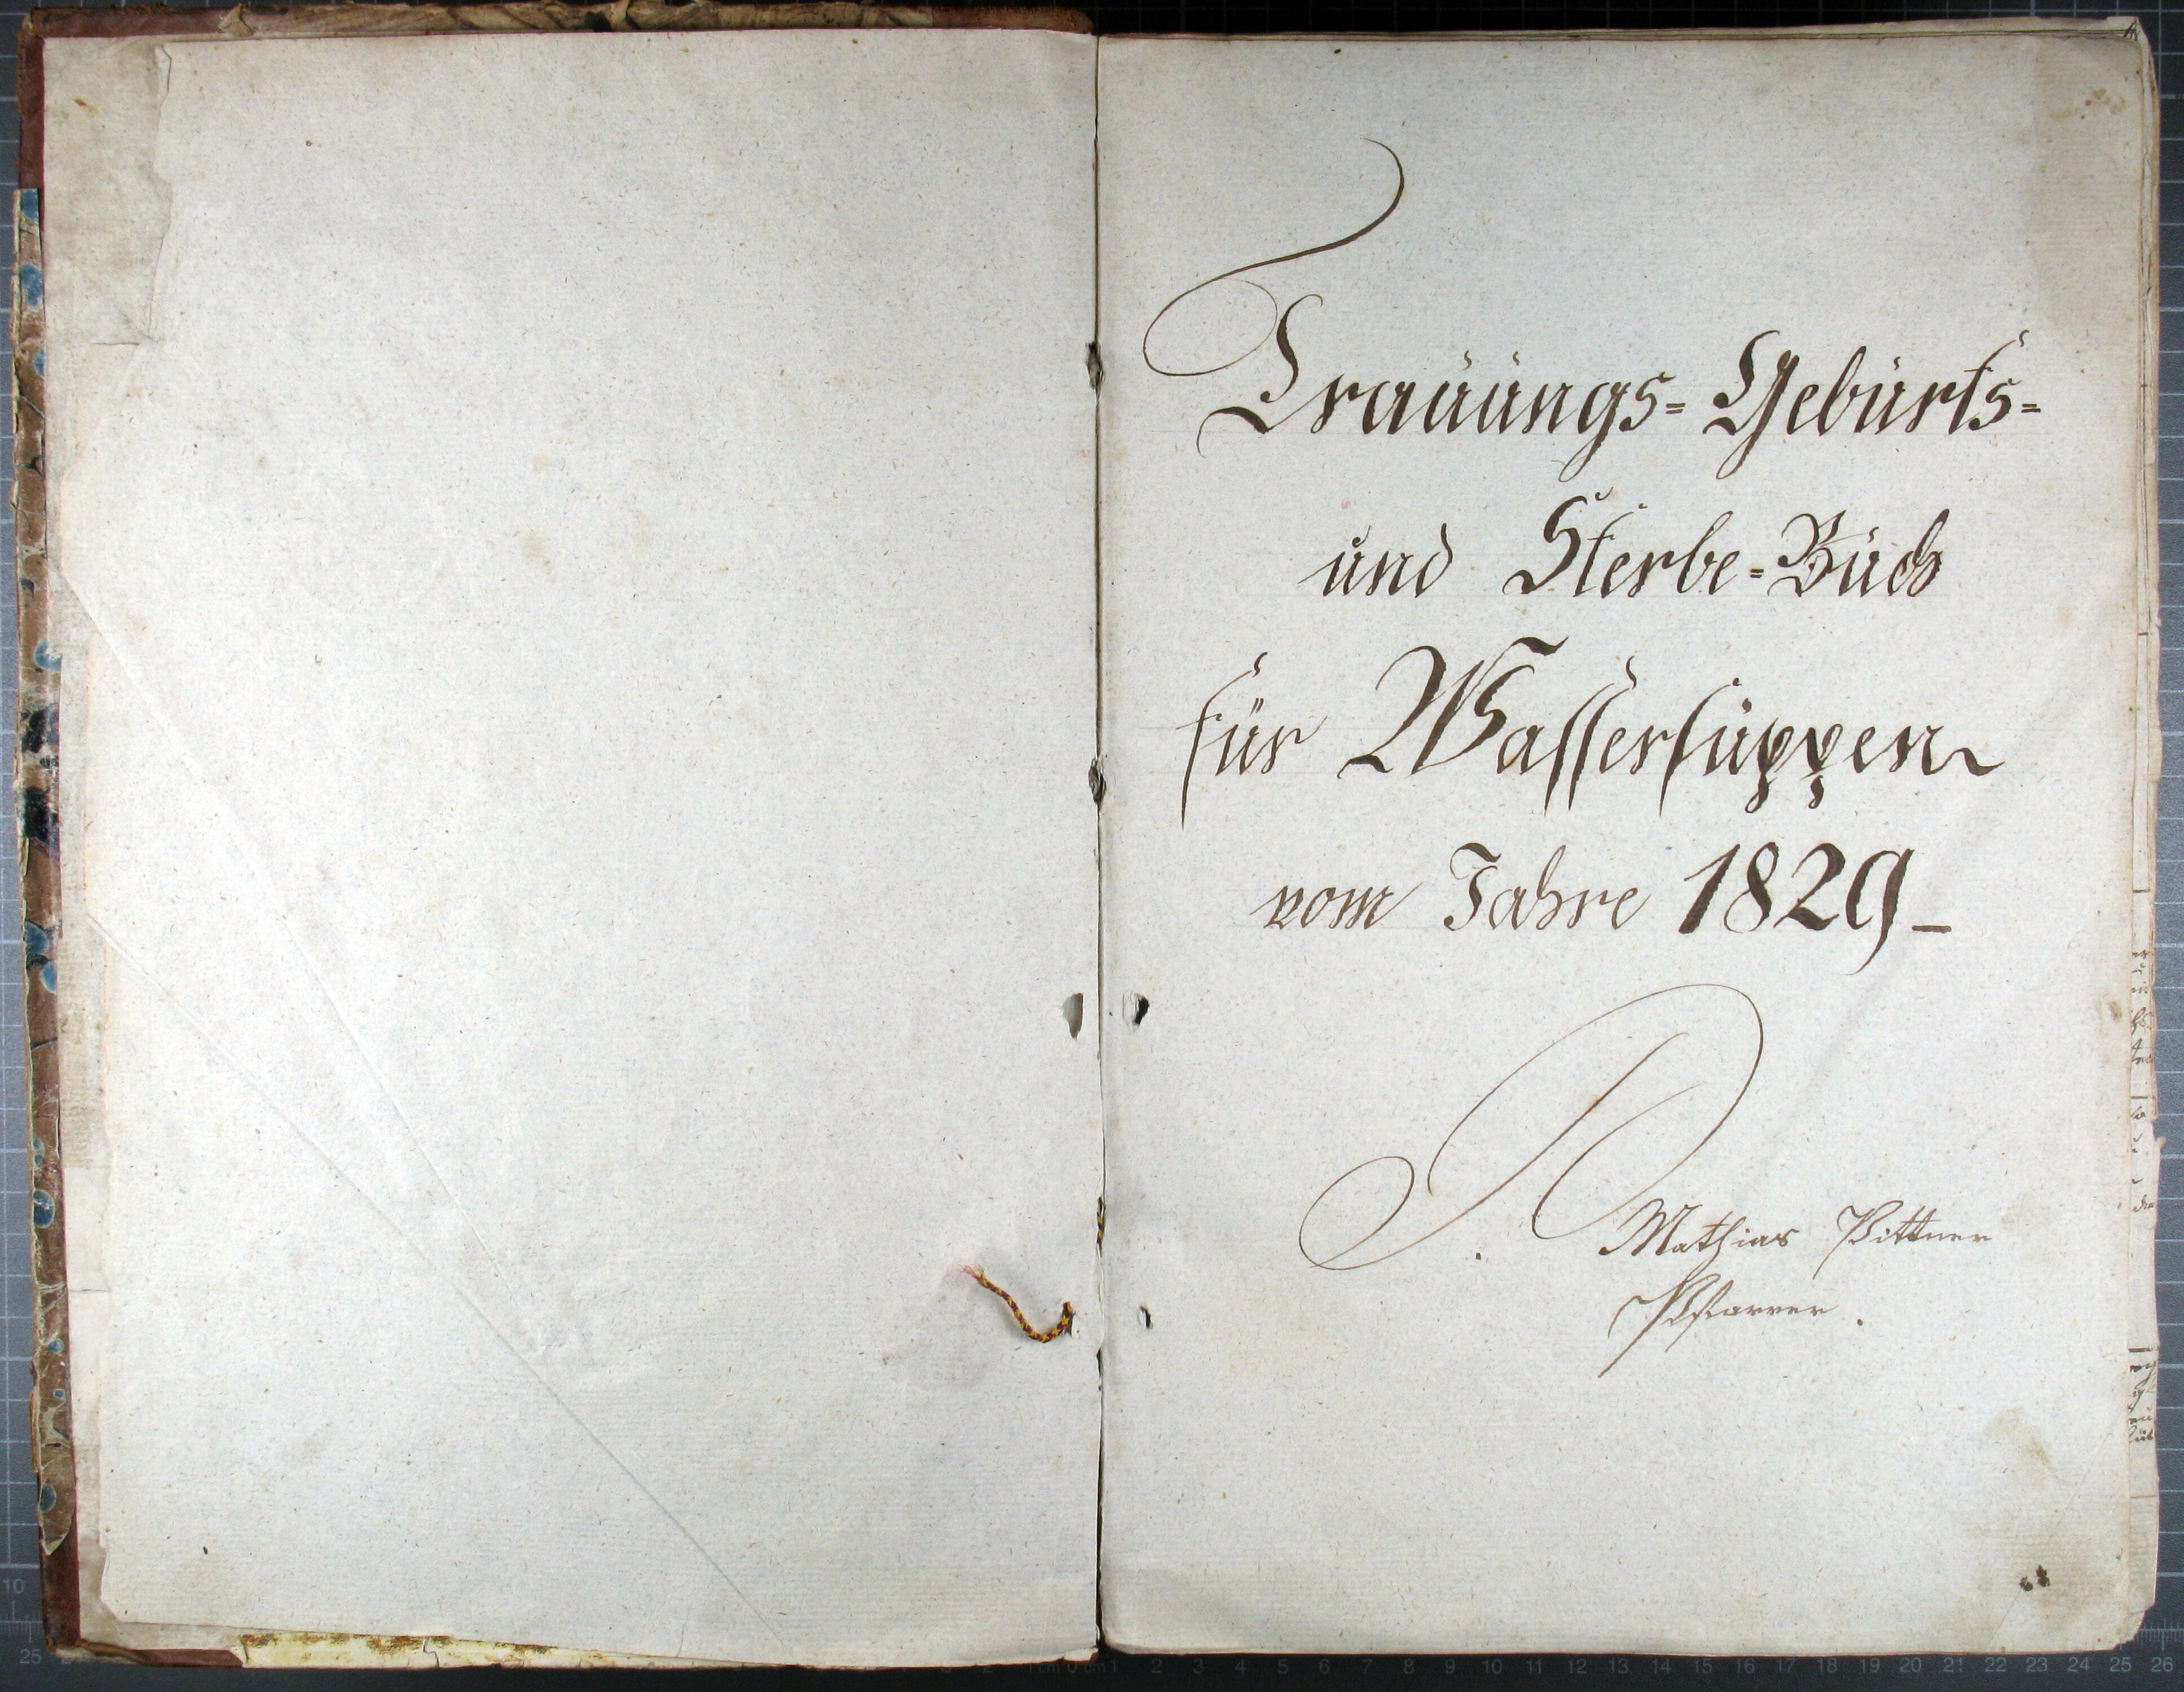 Trauungs= Geburts=
und Sterbe=Buch
für Wassersuppen
vom Jahre 1829_
Mathias Pittner
Pfarrer.